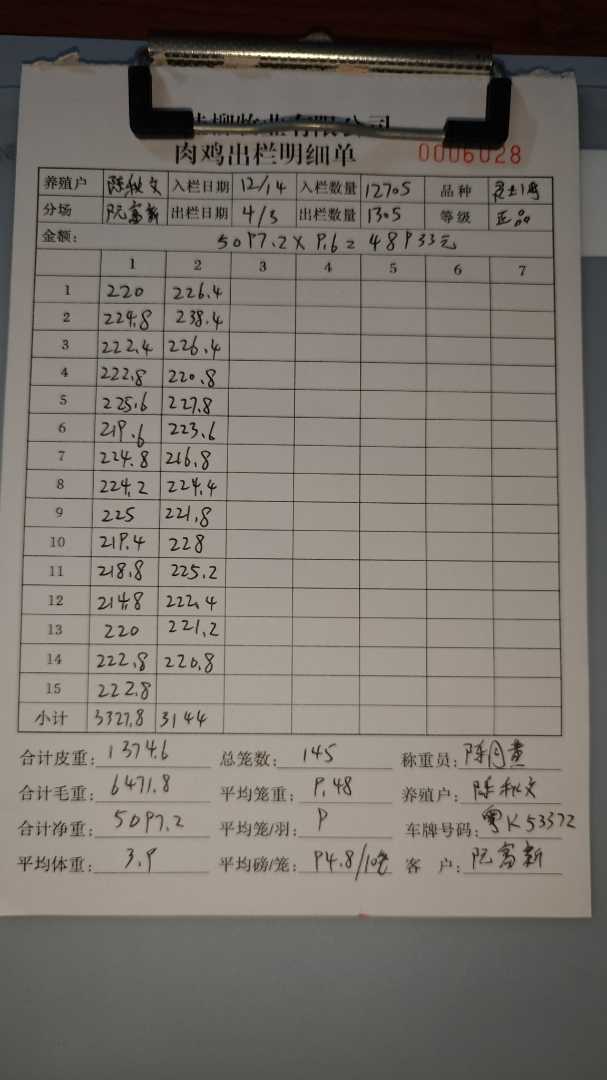 桂柳牧业有限公司
肉鸡出栏明细单 0006028
养殖户 陈秋文 入栏日期 12/14 入栏数量 12705 品种
分场 阮富新 出栏日期 4/3 出栏数量 1305 等级 正品
金额: 5097.2×9.6=48933元
1 2 3 4 5 6 7
1 220 226.4
2 224.8 238.4
3 222.4 226.4
4 222.8 220.8
5 225.6 227.8
6 219.6 223.6
7 224.8 216.8
8 224.2 224.4
9 225 221.8
10 219.4 228
11 218.8 225.2
12 214.8 222.4
13 220 221.2
14 222.8 220.8
15 222.8
小计 3327.8 3144
合计皮重: 1374.6 总笼数: 145 称重员: 陈月贵
合计毛重: 6471.8 平均笼重: 9.48 养殖户: 陈秋文
合计净重: 5097.2 平均笼/羽: 9 车牌号码: 粤K53372
平均体重: 3.9 平均磅/笼: 94.8/10笼 客户: 阮富新